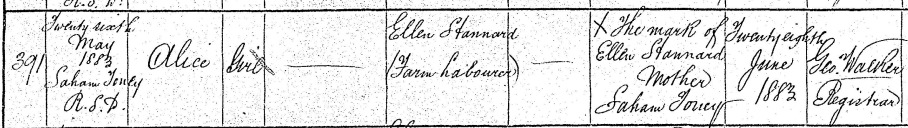 391
Twenty sixth
May
1883
Saham Toney
R.S.D.
Alice
Girl
Ellen Stannard
(Farm Labourer)
X The mark of
Ellen Stannard
Mother
Saham Toney
Twenty eighth
June
1883
Geo. Walker
Registrar